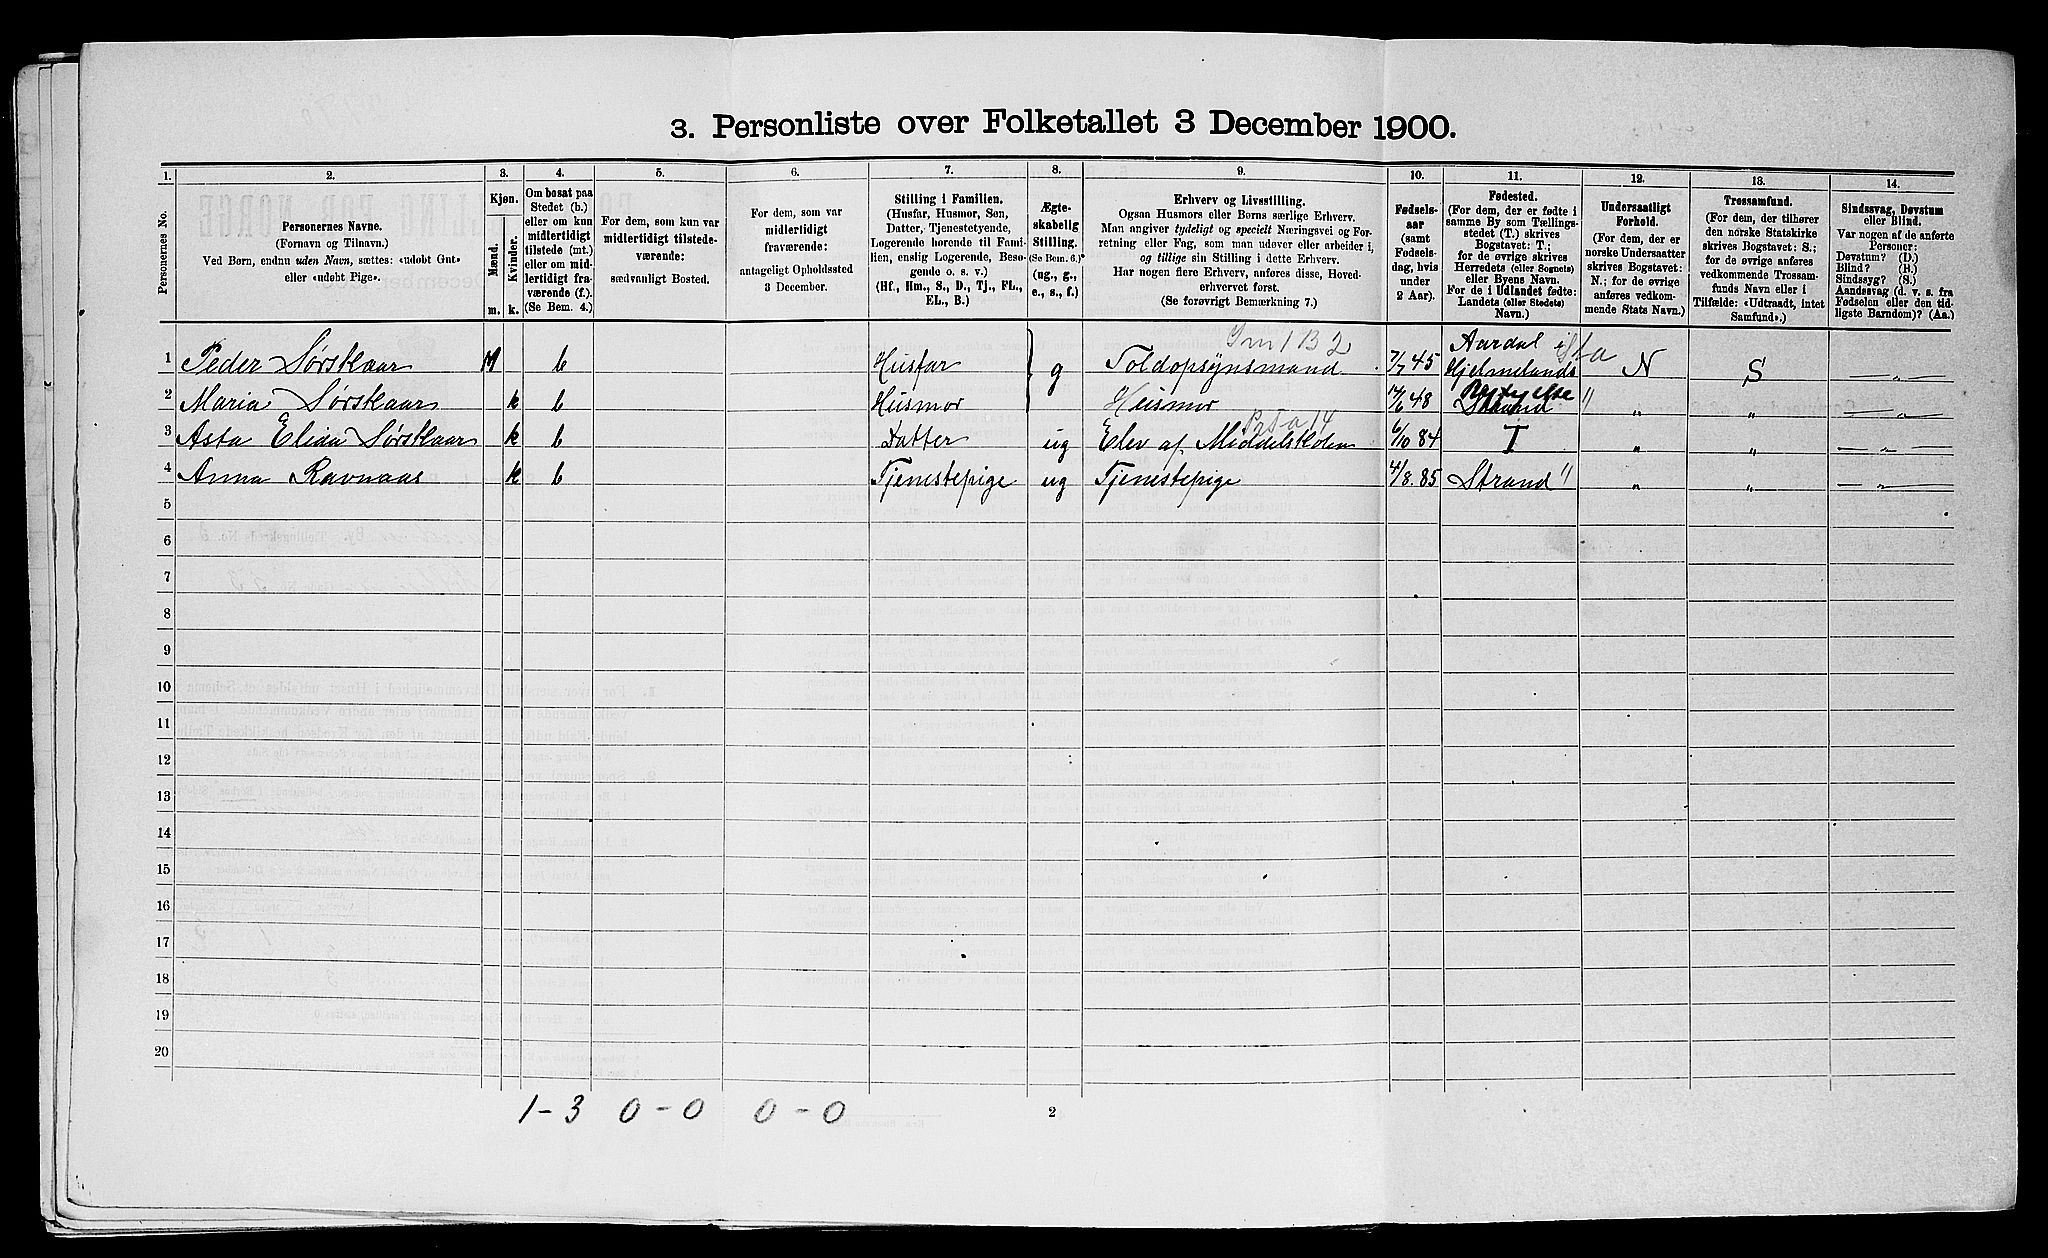 3. Personliste over Folketallet 3 December 1900.
1. 2. 3. 4. 5. 6. 7. 8. 9. 10. 11. 12. 13. 14.
Personernes No.
Personernes Navne.
(Fornavn og Tilnavn.)
Ved Børn, endnu uden Navn, sættes: «udøbt Gut»
eller «udøbt Pige».
Kjøn.
Mænd.
Kvinder.
m. k.
Om bosat paa
Stedet (b.)
eller om kun
midlertidigt
tilstede (mt.)
eller om mid-
lertidigt fra-
værende (f.).
(Se Bem. 4.)
For dem, som kun var
midlertidigt tilstede-
værende:
sædvanligt Bosted.
For dem, som var
midlertidigt
fraværende:
antageligt Opholdssted
3 December.
Stilling i Familien.
(Husfar, Husmor, Søn,
Datter, Tjenestetyende,
Logerende hørende til Fami-
lien, enslig Logerende, Besø-
gende o. s. v.)
(Hf., Hm., S., D., Tj., FL.,
EL., B.)
Ægte-
skabelig
Stilling.
(Se Bem. 6.)*
(ug., g.,
e., s., f.)
Erhverv og Livsstilling.
Ogsaa Husmors eller Børns særlige Erhverv.
Man angiver tydeligt og specielt Næringsvei og For-
retning eller Fag, som man udøver eller arbeider i,
og tillige sin Stilling i dette Erhverv.
Har nogen flere Erhverv, anføres disse, Hoved-
erhvervet først.
(Se forøvrigt Bemærkning 7.)
Fødsels-
aar
(samt
Fødsels-
dag, hvis
under
2 Aar).
Fødested.
(For dem, der er fødte i
samme By som Tællings-
stedet (T.) skrives
Bogstavet: T;
for de øvrige skrives
Herredets (eller Sognets)
eller Byens Navn.
For de i Udlandet fødte:
Landets (eller Stedets)
Navn.)
Undersaatligt
Forhold.
(For dem, der er
norske Undersaatter
skrives Bogstavet:
N.; for de øvrige
anføres vedkom-
mende Stats Navn.)
Trossamfund.
(For dem, der tilhører
den norske Statskirke
skrives Bogstavet: S.;
for de øvrige anføres
vedkommende Trossam-
funds Navn eller i
Tilfælde: «Udtraadt, intet
Samfund».)
Sindssvag, Døvstum
eller Blind.
Var nogen af de anførte
Personer:
Døvstum? (D.)
Blind? (B.)
Sindssyg? (S.)
Aandssvag (d. v. s. fra
Fødselen eller den tid-
ligste Barndom)? (Aa.)
1 Peder Sørskaar M b Husfar g Toldopsynsmand 7/7 45 Aardal i Hjelmelands N S — " —
2 Maria Sørskaar k b Husmor Husmor 6 48 Strand " " " — " —
3 Asta Elida Sørskaar k b Datter ug Elev af Middelskolen 6/10 84 T " " — " —
4 Anna Ravnaas k b Tjenestepige ug Tjenestepige 4/8. 85 Strand " " " — " —
5
6
7
8
9
10
11
12
13
14
15
16
17
18
19
20
1-3 0-0 0-0
2